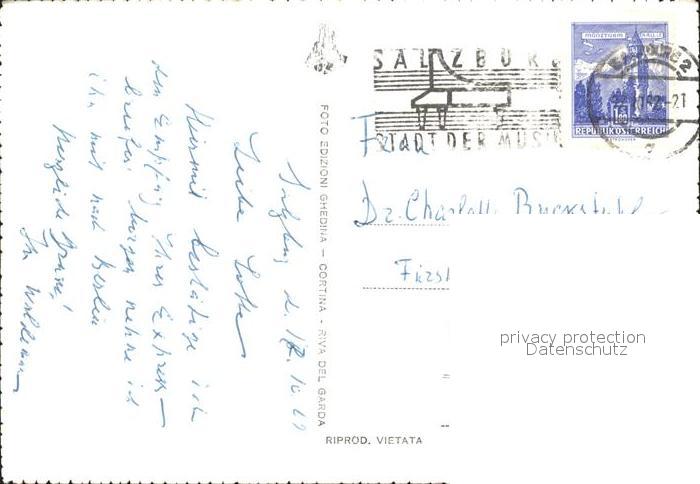 Salzburg d. 18. 10. 62
Liebe Lotte
Hiermit bestätige ich
den Empfang Ihres Express-
briefes. Morgen nehme ich
ihn mit nach Berlin
Herzliche Grüsse!
Ihr Waldemar
FOTO EDIZIONI GHEDINA - CORTINA - RIVA DEL GARDA
RIPROD. VIETATA
SALZBURG
STADT DER MUSIK
MÜNZTURM HALL I.T.
REPUBLIK ÖSTERREICH
Frau
Dr. Charlotte
Fürst
privacy protection
Datenschutz